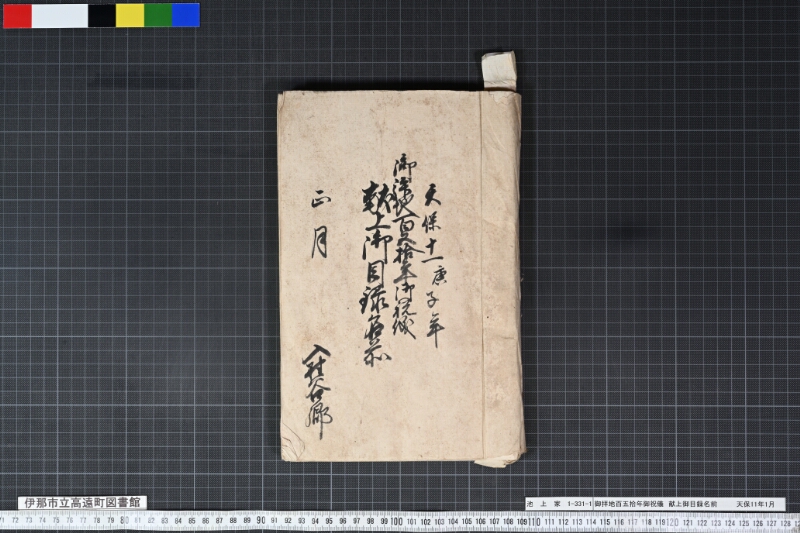 天保十一庚子年
御拝地百五拾年御祝儀
献上御目録名前
正月
入野谷郷
伊那市立高遠町図書館
池上家 1-331-1 御拝地百五拾年御祝儀 献上御目録名前 天保11年1月